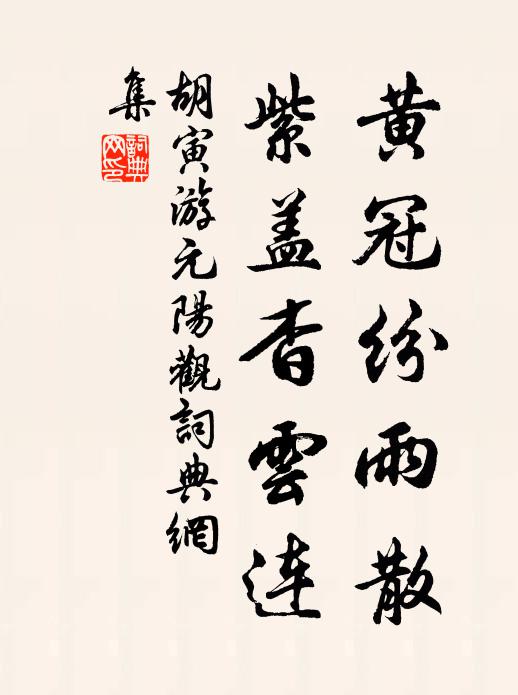 黃冠紛雨散
紫蓋杳雲連
胡寅游元陽觀詞典網
集
詞典網印